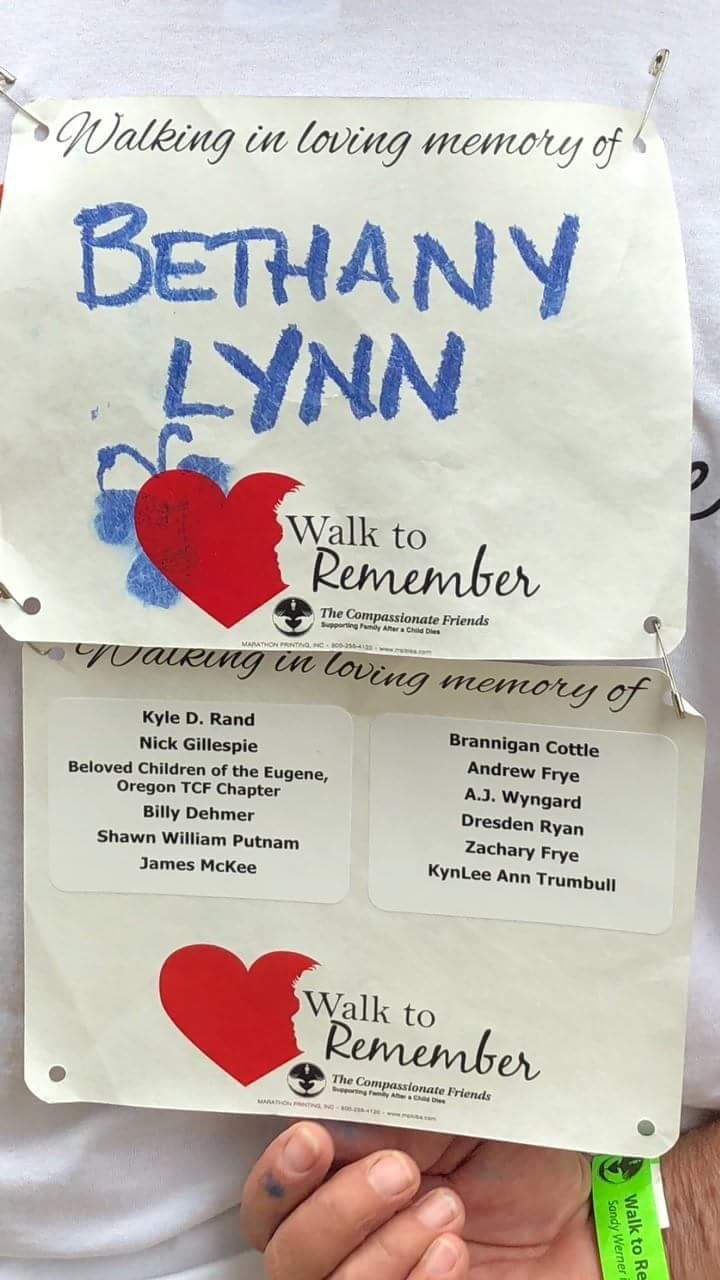 Walking in loving memory of
BETHANY
LYNN
Walk to
Remember
The Compassionate Friends
Supporting Family After a Child Dies
MARATHON PRINTING, INC - 800-259-4120 - www.mpibibs.com
Walking in loving memory of
Kyle D. Rand
Nick Gillespie
Beloved Children of the Eugene,
Oregon TCF Chapter
Billy Dehmer
Shawn William Putnam
James McKee
Brannigan Cottle
Andrew Frye
A.J. Wyngard
Dresden Ryan
Zachary Frye
KynLee Ann Trumbull
Walk to
Remember
The Compassionate Friends
Supporting Family After a Child Dies
MARATHON PRINTING, INC - 800-259-4120 - www.mpibibs.com
Walk to Re
Sandy Werner